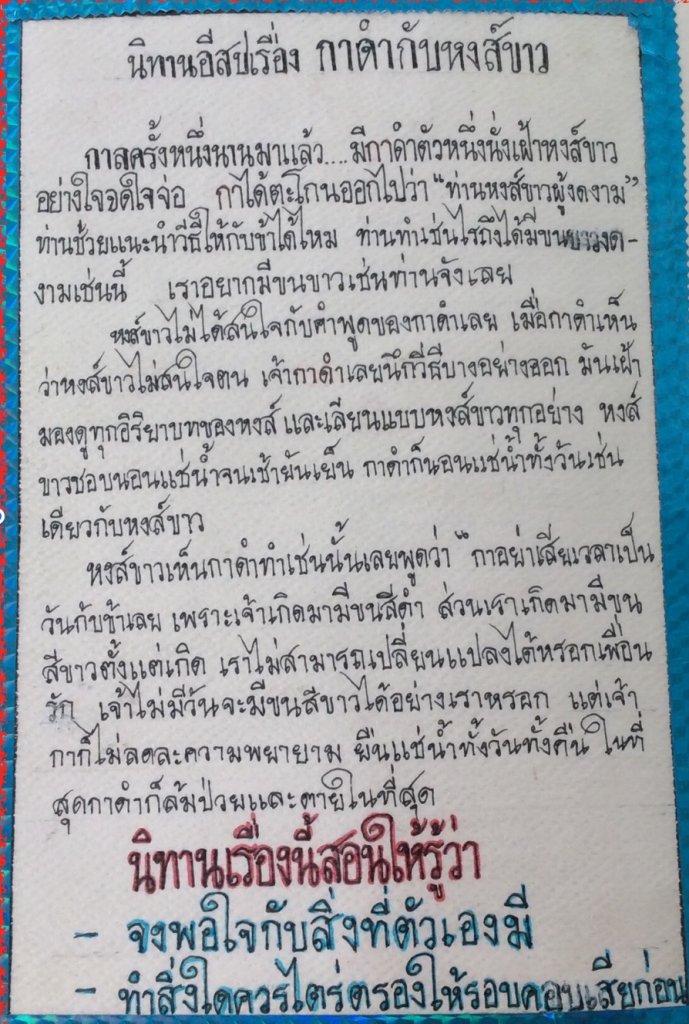 นิทานอีสปเรื่อง กาดำกับหงส์ขาว
กาลครั้งหนึ่งนานมาแล้ว....มีกาดำตัวหนึ่งนั่งเฝ้าหงส์ขาว
อย่างใจจดใจจ่อ กาได้ตะโกนออกไปว่า "ท่านหงส์ขาวผู้งดงาม"
ท่านช่วยแนะนำวิธีให้กับข้าได้ไหม ท่านทำเช่นไรถึงได้มีขนขาวงด-
งามเช่นนี้ เราอยากมีขนขาวเช่นท่านจังเลย
หงส์ขาวไม่ได้สนใจกับคำพูดของกาดำเลย เมื่อกาดำเห็น
ว่าหงส์ขาวไม่สนใจตน เจ้ากาดำเลยนึกวิธีบางอย่างออก มันเฝ้า
มองดูทุกอิริยาบทของหงส์ และเลียนแบบหงส์ขาวทุกอย่าง หงส์
ขาวชอบนอนแช่น้ำจนเช้ายันเย็น กาดำก็นอนแช่น้ำทั้งวันเช่น
เดียวกับหงส์ขาว
หงส์ขาวเห็นกาดำทำเช่นนั้นเลยพูดว่า "กาอย่าเสียเวลาเป็น
วันกับข้าเลย เพราะเจ้าเกิดมามีขนสีดำ ส่วนเราเกิดมามีขน
สีขาวตั้งแต่เกิด เราไม่สามารถเปลี่ยนแปลงได้หรอกเพื่อน
รัก เจ้าไม่มีวันจะมีขนสีขาวได้อย่างเราหรอก แต่เจ้า
กาก็ไม่ลดละความพยายาม ยืนแช่น้ำทั้งวันทั้งคืน ในที่
สุดกาดำก็ล้มป่วยและตายในที่สุด
นิทานเรื่องนี้สอนให้รู้ว่า
- จงพอใจกับสิ่งที่ตัวเองมี
- ทำสิ่งใดควรไตร่ตรองให้รอบคอบเสียก่อน